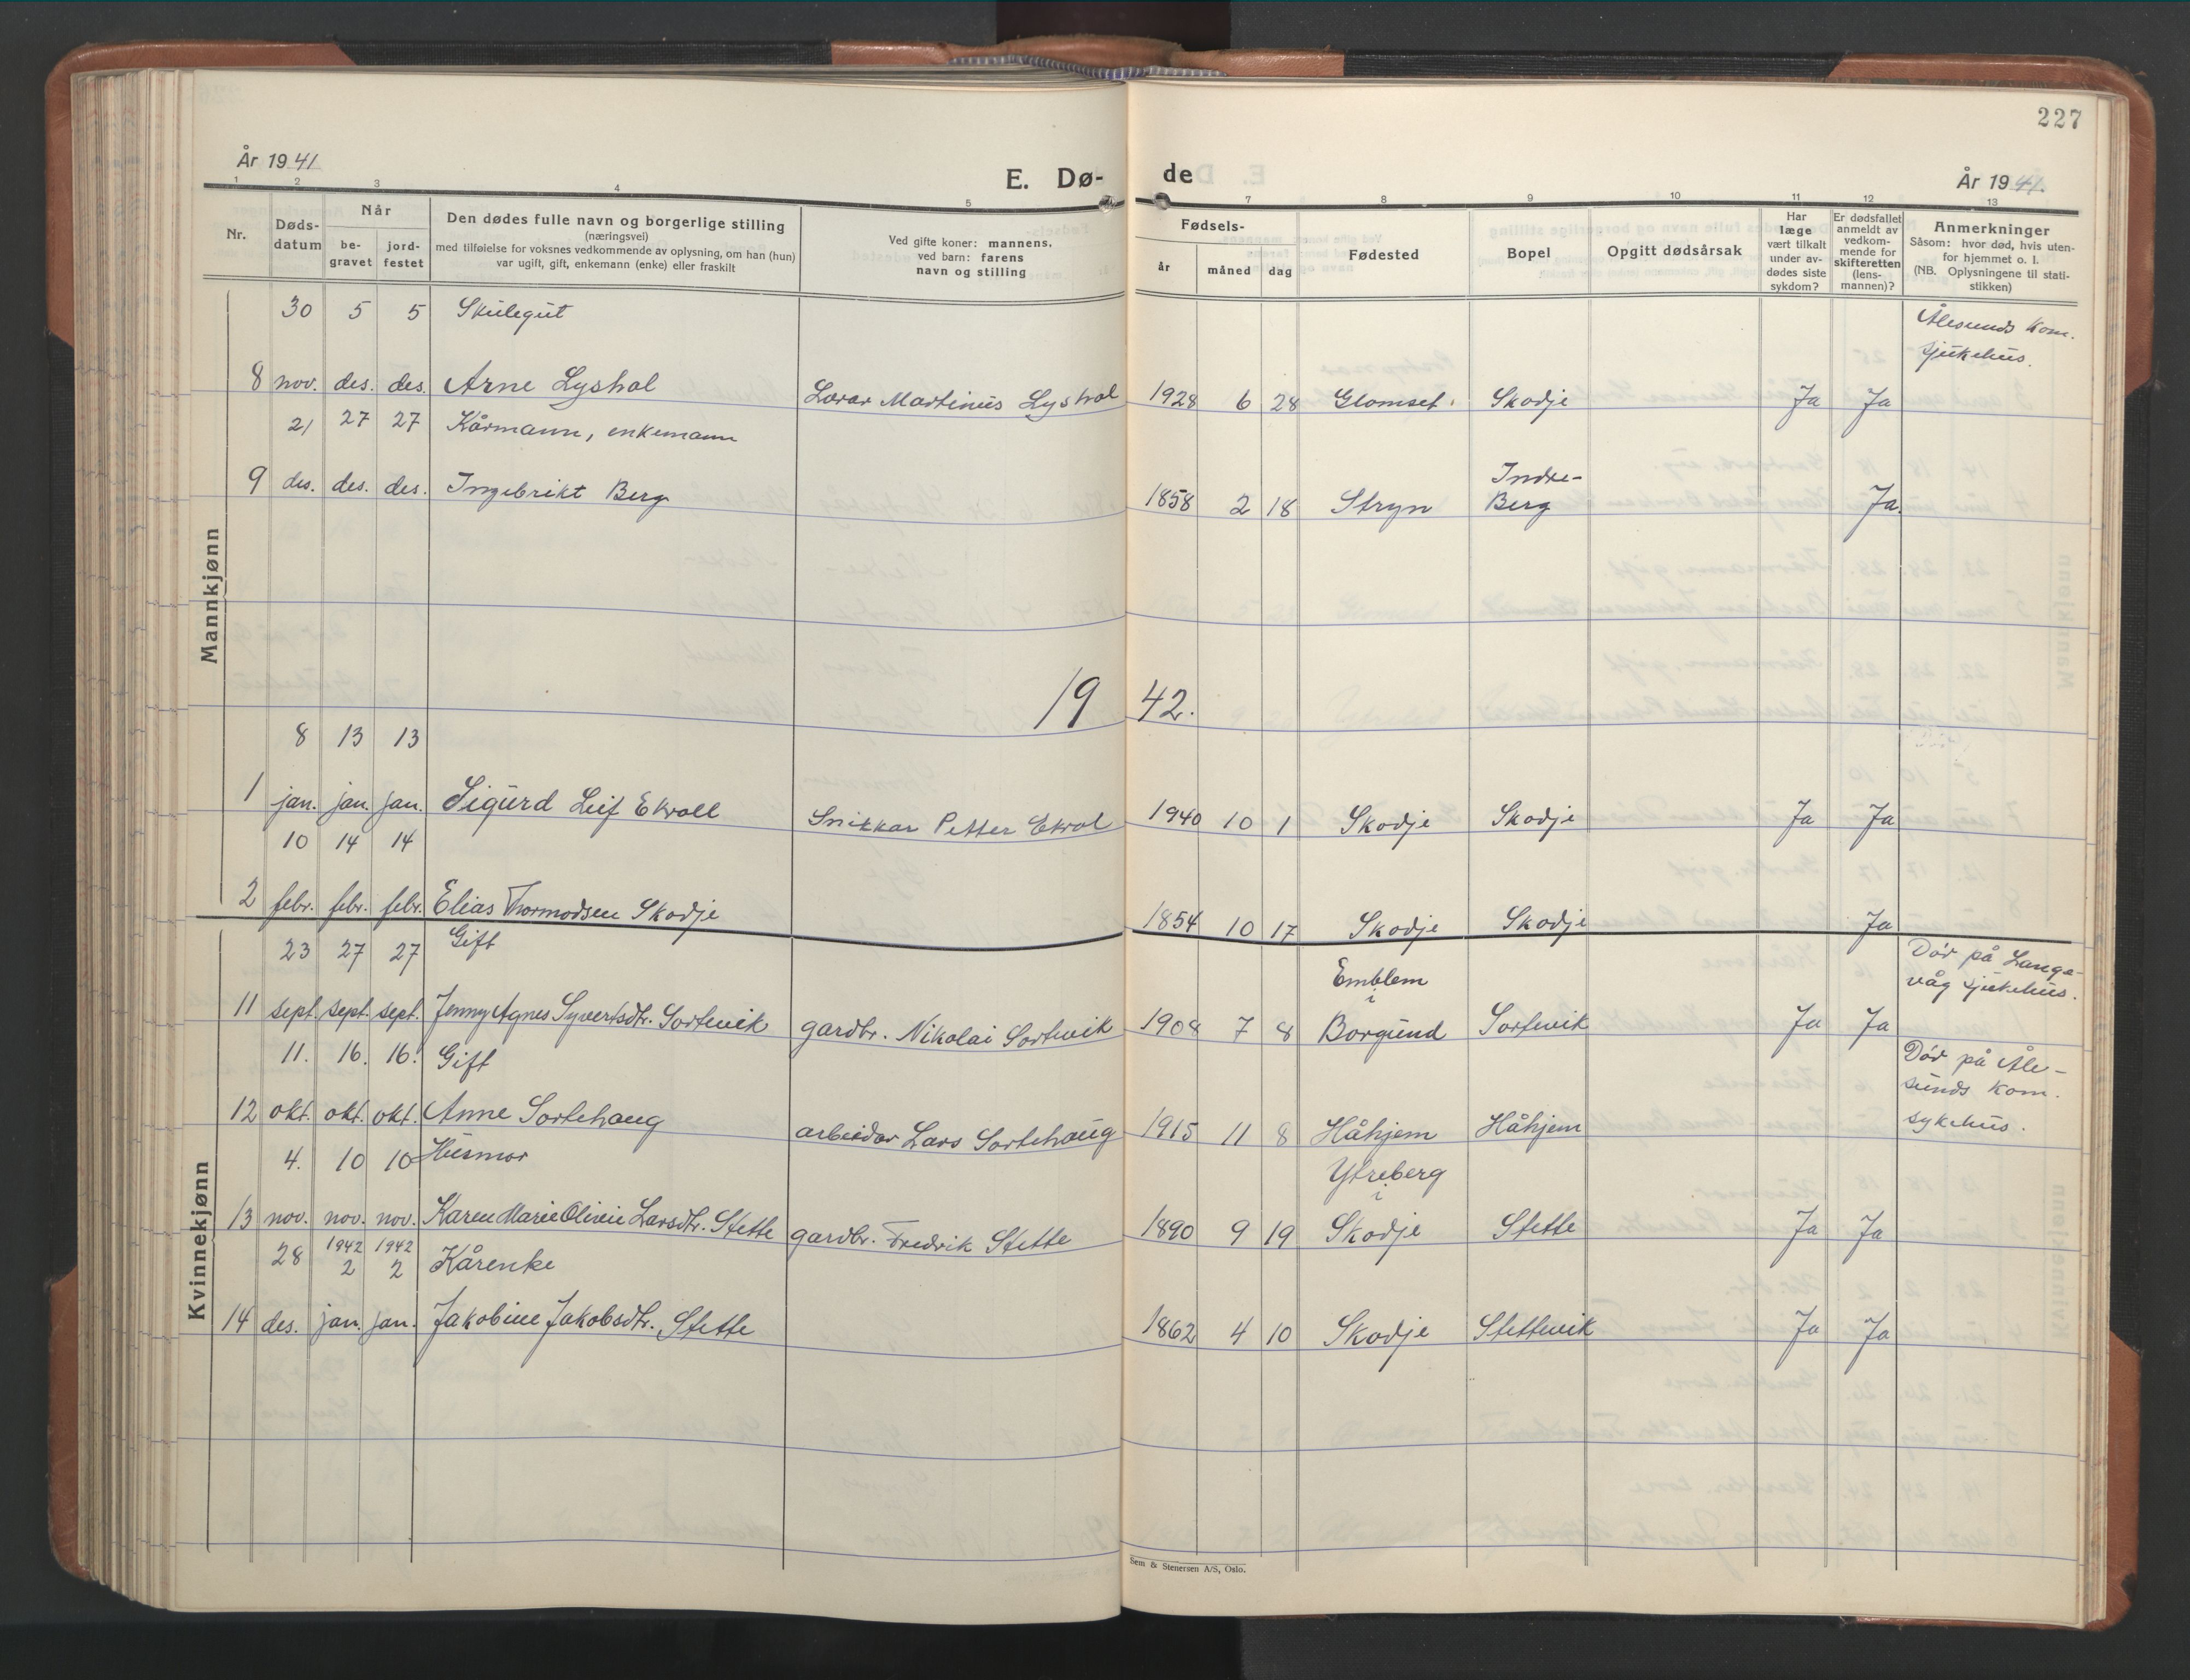 227
År 1941
E. Dø-
de
År 1941.
1 2 3 4 5
7 8 9 10 11 12 13
Nr.
Døds-
datum
Når
be-
gravet
jord-
festet
Den dødes fulle navn og borgerlige stilling
(næringsvei)
med tilføielse for voksnes vedkommende av oplysning, om han (hun)
var ugift, gift, enkemann (enke) eller fraskilt
Ved gifte koner: mannens,
ved barn: farens
navn og stilling
Fødsels-
år
måned
dag
Fødested
Bopel
Opgitt dødsårsak
Har
læge
vært tilkalt
under av-
dødes siste
sykdom?
Er dødsfallet
anmeldt av
vedkom-
mende for
skifteretten
(lens-
mannen)?
Anmerkninger
Såsom: hvor død, hvis uten-
for hjemmet o. l.
(NB. Oplysningene til stati-
stikken)
Mannkjønn
30 5 5 Skulegut
Ålesunds Kom.
sjukehus.
8 nov. des. des. Arne Lyshol Lærar Martinus Lyshol 1928 6 28 Glomset. Skodje Ja Ja
21 27 27 Kårmann, enkemann
Indre-
9 des. des. des. Ingebrikt Berg 1858 2 18 Stryn Berg Ja.
19 42.
8 13 13
1 jan. jan. jan. Sigurd Leif Ekroll Snikkar Petter Ekrol 1940 10 1 Skodje Skodje Ja Ja
10 14 14
2 febr. febr. febr. Elias Thormodsen Skodje 1854 10 17 Skodje Skodje Ja
Kvinnekjønn
23 27 27 Gift
Emblem
i
Död på Lange-
våg sjukehus.
11 sept. sept. sept. Jenny Agnes Syvertsdtr. Sortevik gardbr. Nikolai Sortevik 1908 7 8 Borgund Sortevik Ja Ja
11. 16. 16. Gift
Död på Åle-
sunds Kom.
sykehus.
12 okt. okt. okt. Anne Sortehaug arbeidar Lars Sortehaug 1915 11 8 Håhjem Håhjem
4. 10 10 Husmor
Ytreberg
i
13 nov. nov. nov. Karen Marie Olivie Larsdtr. Stette gardbr. Fredrik Stette 1890 9 19 Skodje Stette Ja Ja
1942 1942
28 2 2 Kårenke
14 des. jan. jan. Jakobine Jakobsdtr. Stette 1862 4 10 Skodje Stettevik Ja Ja
Sem & Stenersen A/S, Oslo.